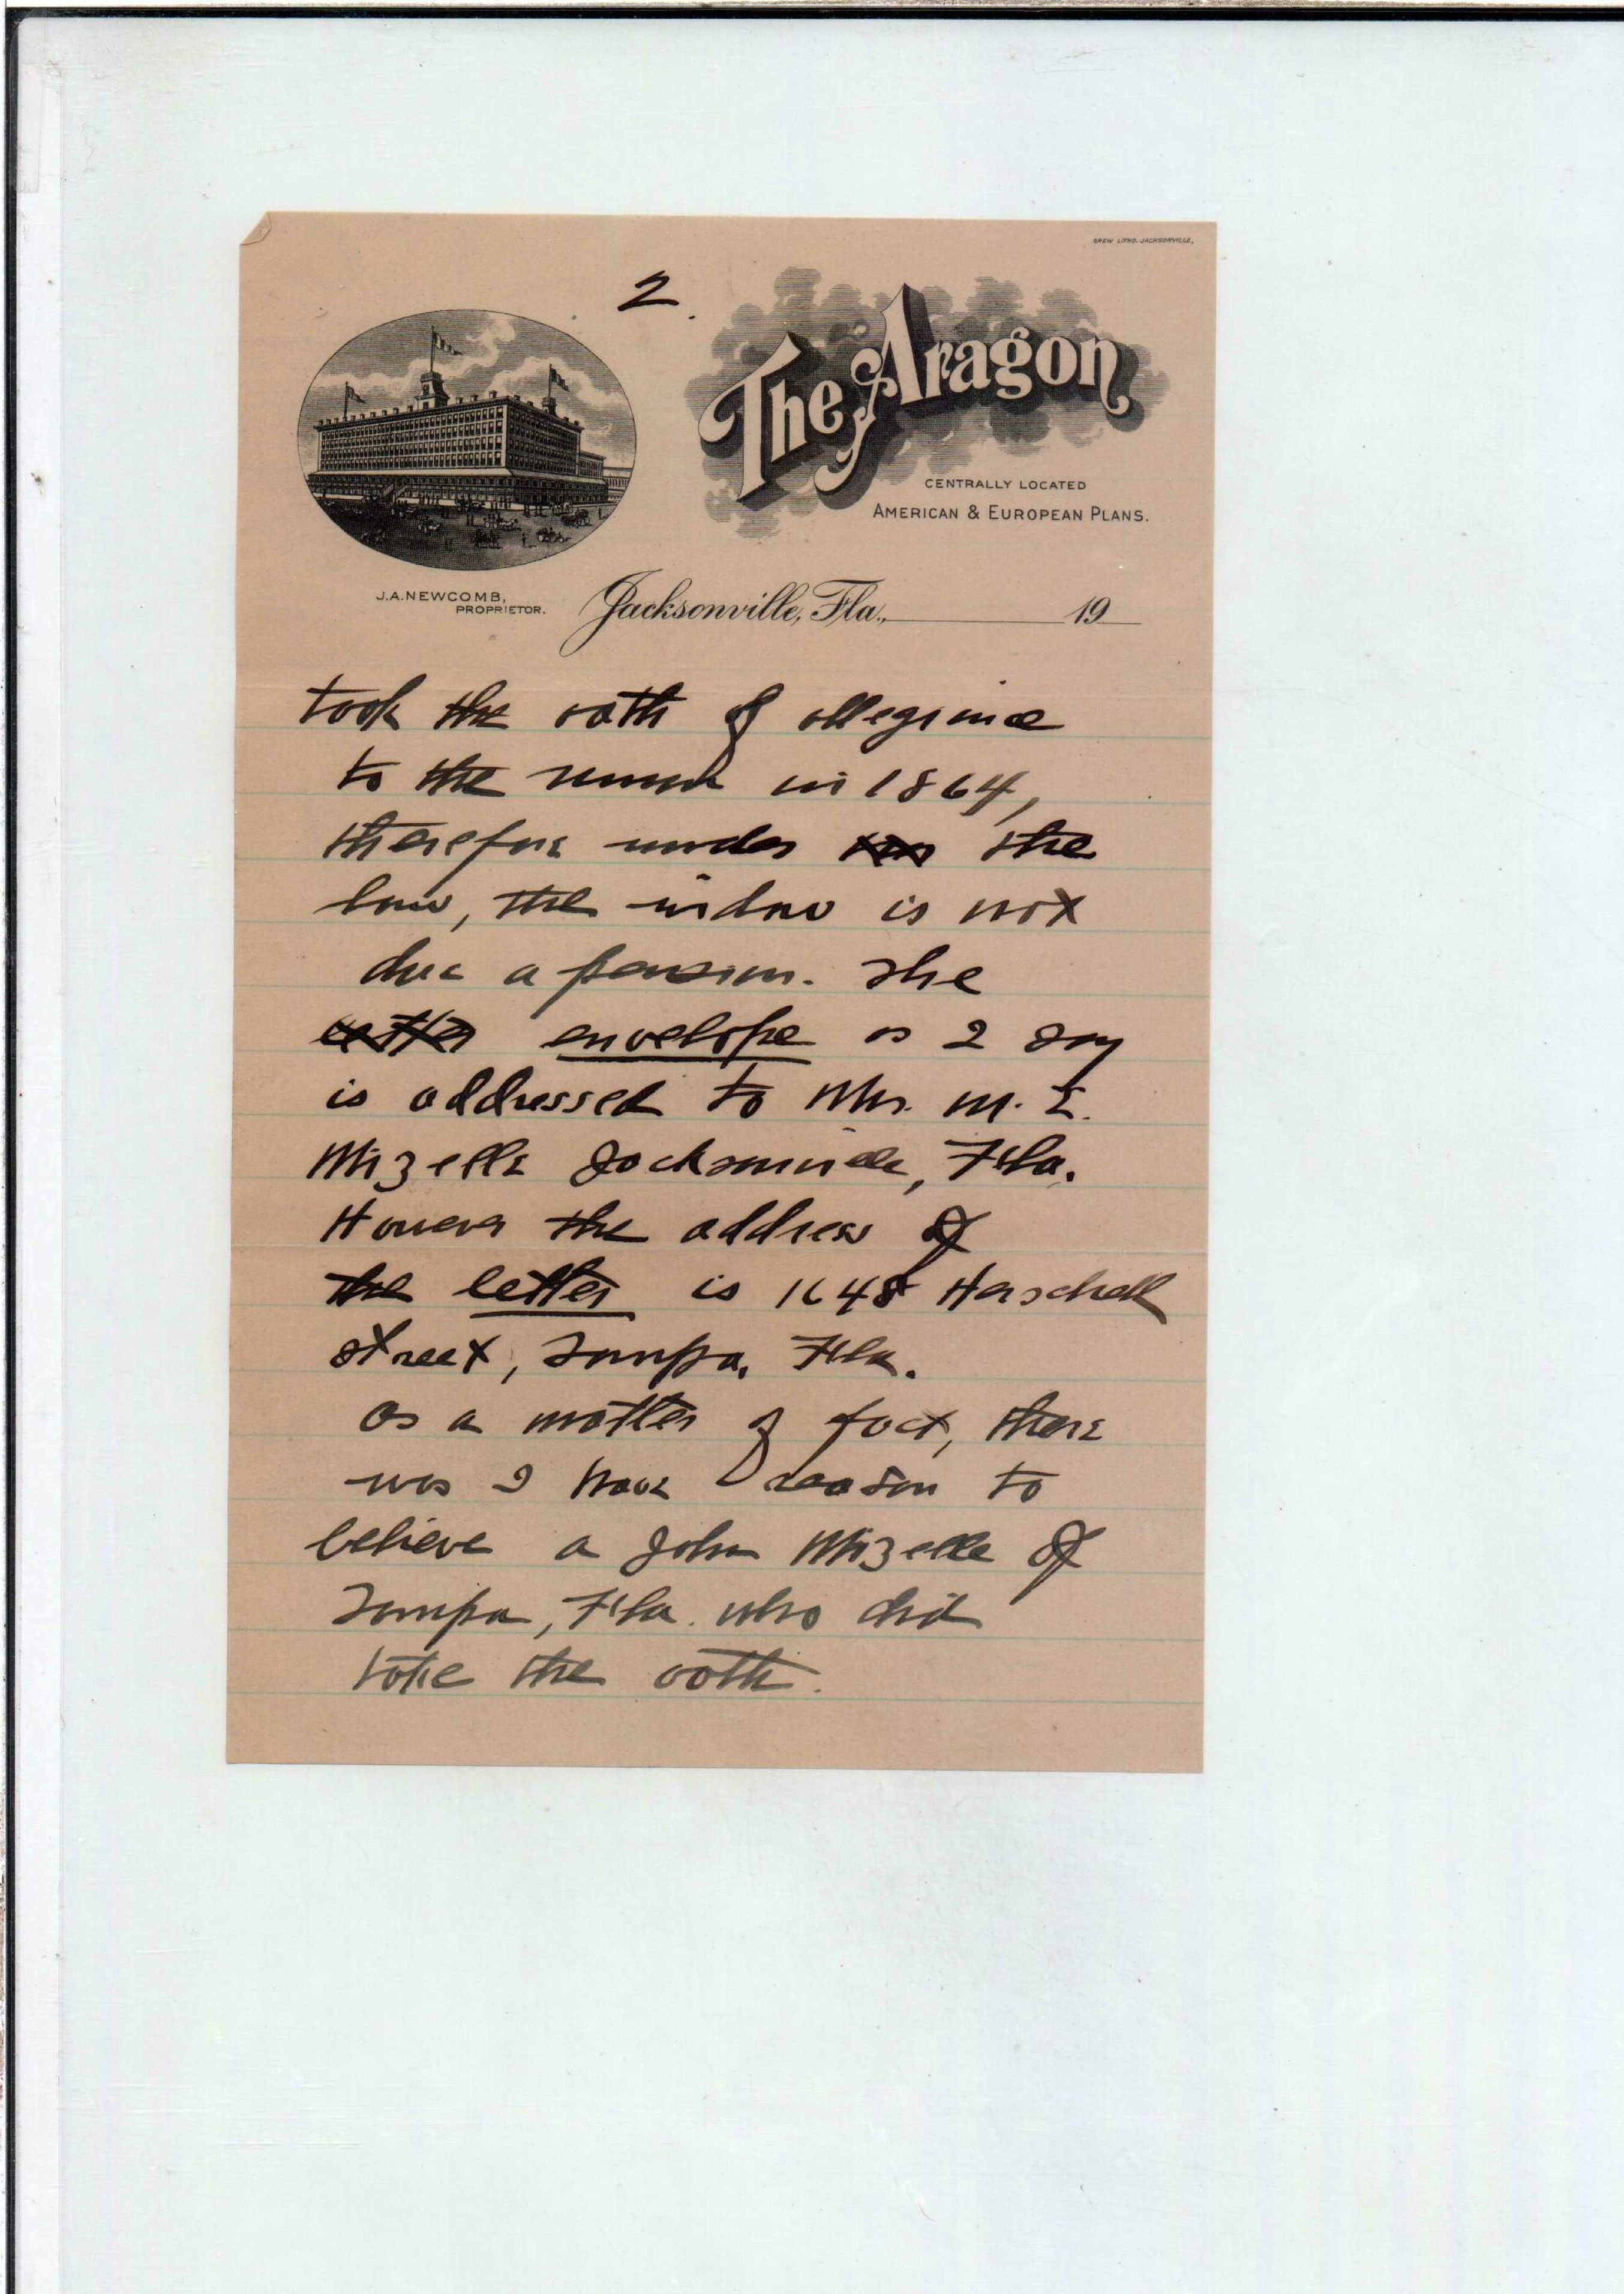 DREW LITHO. JACKSONVILLE,
2.
The Aragon
CENTRALLY LOCATED
AMERICAN & EUROPEAN PLANS.
J.A. NEWCOMB,
PROPRIETOR.
Jacksonville, Fla., 19
took the oath of allegiance
to the union in 1864,
therefore under the
law, the widow is not
due a pension. The
letter envelope as I say
is addressed to Mrs. M. E.
Mizelle Jacksonville, Fla.
However the address of
the letter is 1648 Herschell
street, Tampa, Fla.
As a matter of fact, there
was I have reason to
believe a John Mizelle of
Tampa, Fla. who did
take the oath.